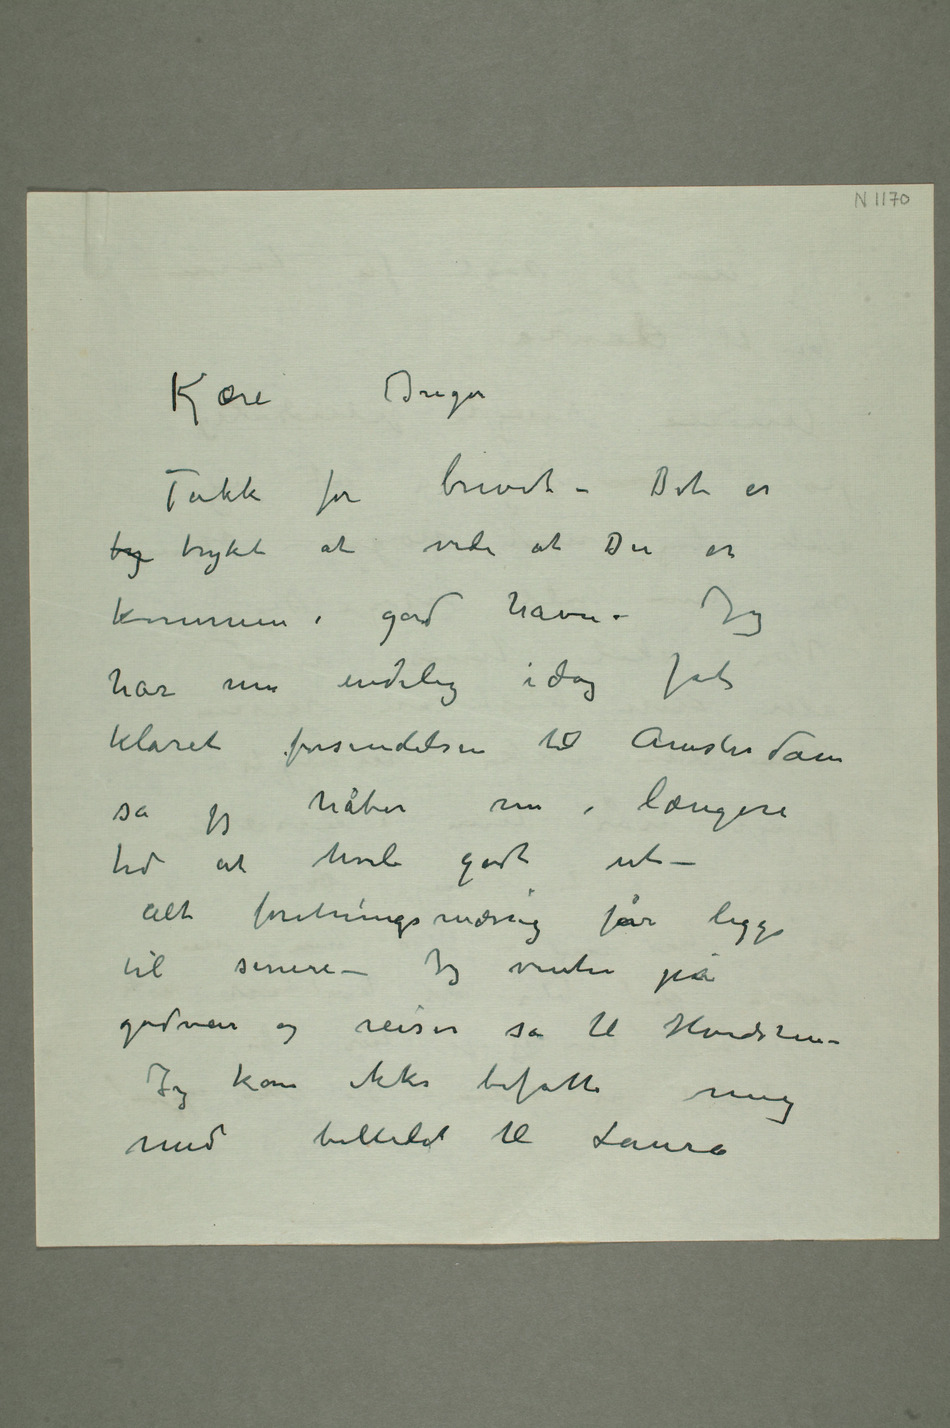 N 1170
Kjære Inger
Takk for brevet – Det er
try trykt at vide at Du er
kommen i god havn – Jeg
har nu endelig idag fåt
klaret forsendelsen til Amsterdam
så jeg håber nu i længere
tid at hvile godt ut –
Alt foretningsmæssig får ligge
til senere – Jeg venter på
godveir og reiser så til Hvidsten –
Jeg kan ikke befatte mig
med billedet til Laura